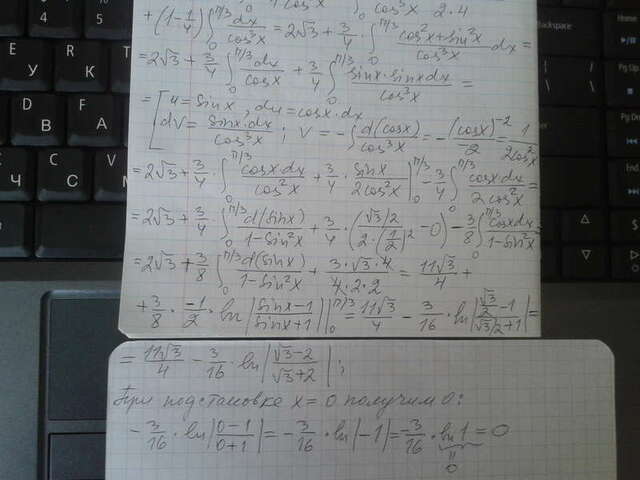 ∫ cos³x 2·4
+(1-1/4)∫₀^(π/3) dx/cos³x = 2√3 + 3/4 · ∫₀^(π/3) (cos²x+sin²x)/cos³x dx =
=2√3 + 3/4 ∫₀^(π/3) dx/cosx + 3/4 ∫₀^(π/3) sinx·sinxdx/cos³x =
=[u=sinx, du=cosx·dx
dV= sinx·dx/cos³x ; V=-∫ d(cosx)/cos³x = -(cosx)^(-2)/(-2) = 1/(2cos²x)
=2√3 + 3/4 · ∫₀^(π/3) cosxdx/cos²x + 3/4 · sinx/(2cos²x) |₀^(π/3) - 3/4 ∫₀^(π/3) cosxdx/(2cos²x) =
=2√3 + 3/4 ∫₀^(π/3) d(sinx)/(1-sin²x) + 3/4 · ((√3/2)/(2·(1/2)²) - 0) - 3/8 ∫₀^(π/3) cosxdx/(1-sin²x) =
=2√3 + 3/8 ∫₀^(π/3) d(sinx)/(1-sin²x) + (3·√3·4)/(4·2·2) = 11√3/4 +
+ 3/8 · (-1/2) · ln|(sinx-1)/(sinx+1)| |₀^(π/3) = 11√3/4 - 3/16 · ln|(√3/2-1)/(√3/2+1)| =
= 11√3/4 - 3/16 · ln|(√3-2)/(√3+2)| ;
При подстановке x=0 получим 0:
-3/16 · ln|(0-1)/(0+1)| = -3/16 · ln|-1| = -3/16 · ln1 = 0
"
0
R
T
Y
К
Е
Н
F
G
А
П
V
Ч
С
М
PgUp
PgDn
End